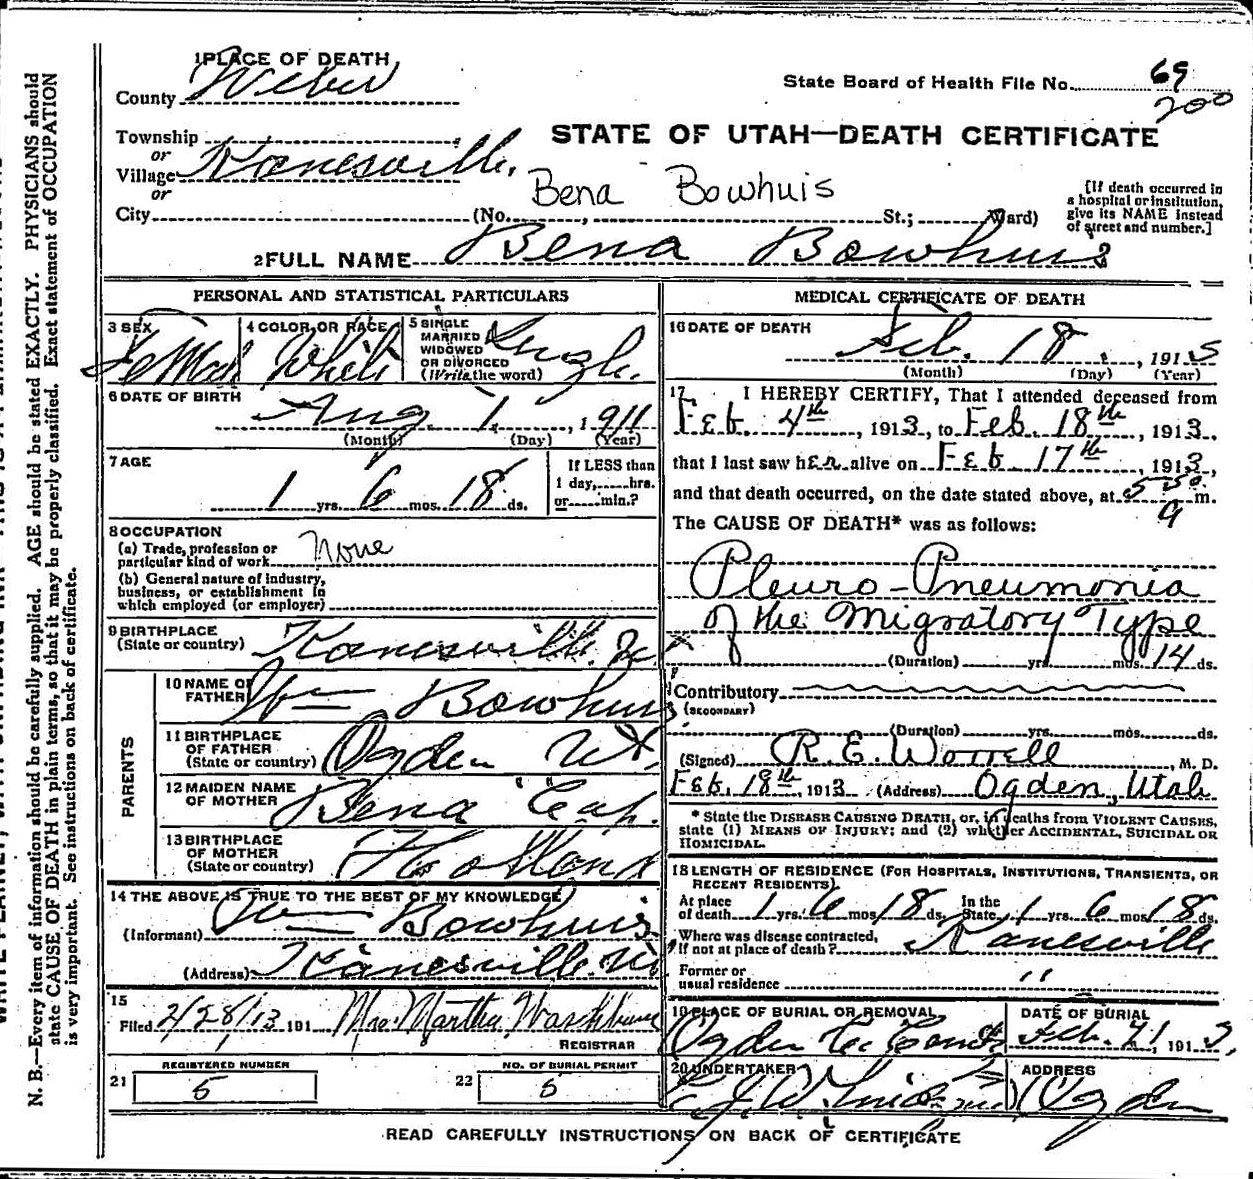 1 PLACE OF DEATH
County Weber
State Board of Health File No. 69
200
Township
or
Village Kanesville,
or
City
STATE OF UTAH—DEATH CERTIFICATE
Bena Bowhuis
(No. , St.; Ward)
[If death occurred in
a hospital or institution,
give its NAME instead
of street and number.]
2 FULL NAME Bena Bowhuis
PERSONAL AND STATISTICAL PARTICULARS
3 SEX
Female
4 COLOR OR RACE
White
5 SINGLE
MARRIED
WIDOWED
OR DIVORCED
(Write the word)
Single.
6 DATE OF BIRTH
Aug. 1. , 1911
(Month) (Day) (Year)
7 AGE
1 yrs. 6 mos. 18 ds.
If LESS than
1 day, hrs.
or min.?
8 OCCUPATION
(a) Trade, profession or
particular kind of work None
(b) General nature of industry,
business, or establishment in
which employed (or employer)
9 BIRTHPLACE
(State or country) Kanesville
PARENTS
10 NAME OF
FATHER Wm Bowhuis
11 BIRTHPLACE
OF FATHER
(State or country) Ogden Ut.
12 MAIDEN NAME
OF MOTHER Bena
13 BIRTHPLACE
OF MOTHER
(State or country) Holland
14 THE ABOVE IS TRUE TO THE BEST OF MY KNOWLEDGE
(Informant) Wm Bowhuis
(Address) Kanesville
15
Filed 2/28/13 191 Mrs. Martha Washburn
REGISTRAR
21 REGISTERED NUMBER
5
22 NO. OF BURIAL PERMIT
5
MEDICAL CERTIFICATE OF DEATH
16 DATE OF DEATH
Feb. 18. , 1913
(Month) (Day) (Year)
17 I HEREBY CERTIFY, That I attended deceased from
Feb 4th , 1913, to Feb. 18th , 1913.
that I last saw her alive on Feb 17th , 1913,
and that death occurred, on the date stated above, at 5 50 m.
a
The CAUSE OF DEATH* was as follows:
Pleuro-Pneumonia
of the Migratory Type
(Duration) yrs. mos. 14 ds.
Contributory
(SECONDARY)
(Duration) yrs. mos. ds.
(Signed) R. E. Worrell , M. D.
Feb. 18th, 1913 (Address) Ogden, Utah
* State the DISEASE CAUSING DEATH, or, in deaths from VIOLENT CAUSES,
state (1) MEANS OF INJURY; and (2) whether ACCIDENTAL, SUICIDAL OR
HOMICIDAL.
18 LENGTH OF RESIDENCE (FOR HOSPITALS, INSTITUTIONS, TRANSIENTS, OR
RECENT RESIDENTS)
At place
of death 1 yrs. 6 mos. 18 ds. In the
State 1 yrs. 6 mos. 18 ds.
Where was disease contracted,
if not at place of death? Kanesville
Former or
usual residence "
19 PLACE OF BURIAL OR REMOVAL
Ogden
DATE OF BURIAL
Feb. 21, 1913,
20 UNDERTAKER
ADDRESS
Ogden
READ CAREFULLY INSTRUCTIONS ON BACK OF CERTIFICATE
N. B.—Every item of information should be carefully supplied. AGE should be stated EXACTLY. PHYSICIANS should
state CAUSE OF DEATH in plain terms, so that it may be properly classified. Exact statement of OCCUPATION
is very important. See instructions on back of certificate.